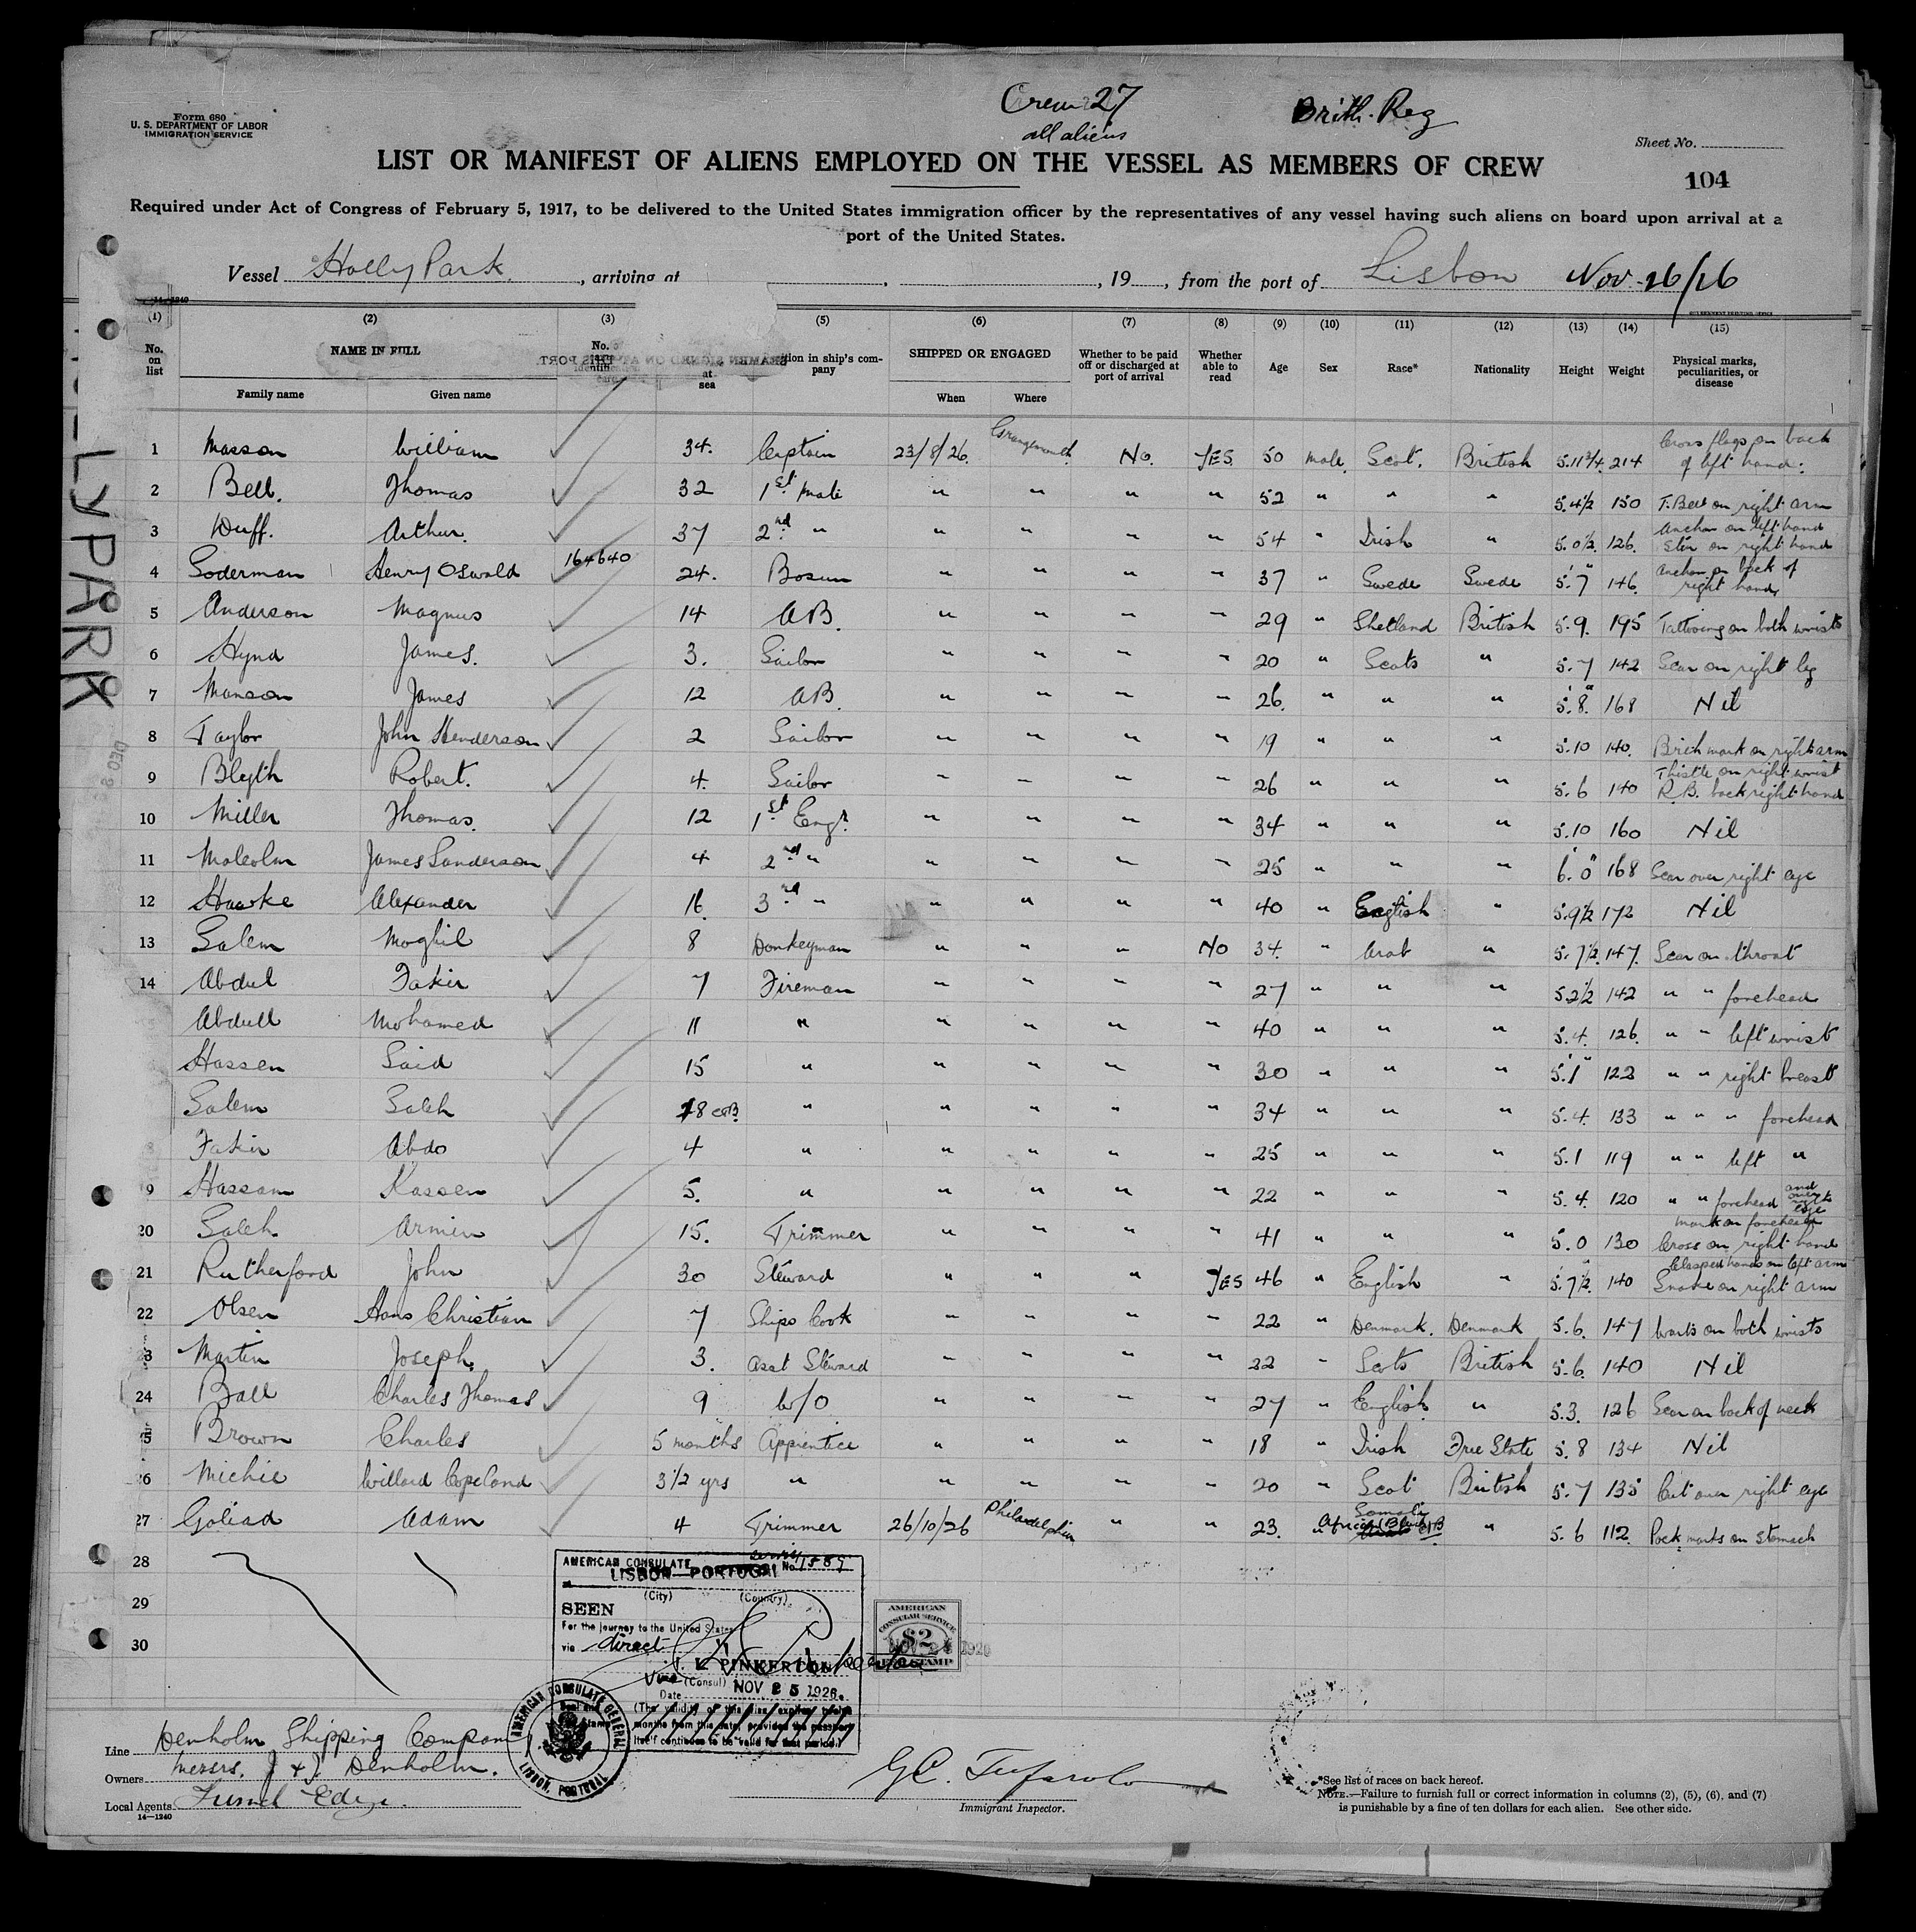 Crew 27
all aliens
Brith. Reg
Form 680
U. S. DEPARTMENT OF LABOR
IMMIGRATION SERVICE
Sheet No.
LIST OR MANIFEST OF ALIENS EMPLOYED ON THE VESSEL AS MEMBERS OF CREW
104
Required under Act of Congress of February 5, 1917, to be delivered to the United States immigration officer by the representatives of any vessel having such aliens on board upon arrival at a
port of the United States.
Vessel Holly Park, arriving at , , 19 , from the port of Lisbon Nov. 26/26
(1) (2) (3) (5) (6) (7) (8) (9) (10) (11) (12) (13) (14) (15)
No. on list NAME IN FULL No. at sea tion in ship's company SHIPPED OR ENGAGED Whether to be paid off or discharged at port of arrival Whether able to read Age Sex Race* Nationality Height Weight Physical marks, peculiarities, or disease
Family name Given name When Where
1 Masson William 34. Captain 23/8/26. Grangemouth No. YES. 50 Male. Scot. British 5.11 3/4. 214 Cross flags on back of left hand.
2 Bell. Thomas 32 1st Mate " " " " 52 " " " 5.4 1/2 150 T. Bell on right arm
3 Duff. Arthur. 37 2nd " " " " " 54 " Irish " 5.0 1/2. 126. Anchor on left hand Star on right hand
4 Soderman Henry Oswald 164640 24. Bosun " " " " 37 " Swede Swede 5'.7" 146. Anchor on back of right hand
5 Anderson Magnus 14 AB. " " " " 29 " Shetland British 5.9. 195 Tattooing on both wrists
6 Hynd James. 3. Sailor " " " " 20 " Scots " 5.7 142 Scar on right leg
7 Manson James 12 AB. " " " " 26. " " " 5'.8" 168 Nil
8 Taylor John Henderson 2 Sailor " " " " 19 " " " 5.10 140. Birth mark on right arm
9 Blyth Robert. 4. Sailor " " " " 26 " " " 5.6 140 Thistle on right wrist R.B. back right hand
10 Miller Thomas. 12 1st Engr. " " " " 34 " " " 5.10 160 Nil
11 Malcolm James Sanderson 4 2nd " " " " " 25 " " " 6'.0" 168 Scar over right eye
12 Hawke Alexander 16. 3rd " " " " " 40 " English " 5.9 1/2 172 Nil
13 Salem Moghil 8 Donkeyman " " " No 34. " Arab " 5.7 1/2. 147. Scar on throat
14 Abdul Fakir 7 Fireman " " " " 27 " " " 5.2 1/2 142 " " forehead
Abdull Mohamed 11 " " " " " 40 " " " 5.4. 126. " " left wrist
Hassen Said 15 " " " " " 30 " " " 5'.1" 122 " " right breast
Salem Saleh 18 " " " " " 34 " " " 5.4. 133 " " " forehead
Fakir Abdo 4 " " " " " 25 " " " 5.1 119 " " left "
9 Hassam Kassen 5. " " " " " 22 " " " 5.4. 120 " " forehead and over right eye
20 Saleh Armin 15. Trimmer " " " " 41 " " " 5.0 130 mark on forehead Cross on right hand
21 Rutherford John 30 Steward " " " YES 46 " English " 5'.7 1/2" 140 Clasped hands on left arm Snake on right arm
22 Olsen Hans Christian 7 Ships Cook " " " " 22 " Denmark. Denmark 5.6. 147 Warts on both wrists
23 Martin Joseph. 3. Asst Steward " " " " 22 " Scots British 5.6. 140 Nil
24 Ball Charles Thomas 9 W/O " " " " 27 " English " 5.3. 126 Scar on back of neck
25 Brown Charles 5 months Apprentice " " " " 18 " Irish Free State 5.8 134 Nil
26 Michie Willard Copeland 3 1/2 yrs " " " " " 20 " Scot British 5.7 135 Cut over right eye
27 Goliad Adam 4 Trimmer 26/10/26 Philadelphia " " 23. " Somali African (Black) " 5.6 112. Pock marks on stomach
28
29
30
HOLLYPARK
AMERICAN CONSULATE
LISBON—PORTUGAL
(City) (Country)
SEEN
For the journey to the United States
via direct
PINKERTON
Vice (Consul)
Date NOV 25 1926.
(The validity of this visa expires twelve
months from this date, provided the passport
itself continues to be valid for that period.)
AMERICAN CONSULATE GENERAL
LISBON, PORTUGAL
AMERICAN
CONSULAR SERVICE
$2
FEE STAMP
Line Denholm Shipping Company.
Owners Messrs. J & J Denholm.
Local Agents Furness
14—1240
Immigrant Inspector.
*See list of races on back hereof.
NOTE.—Failure to furnish full or correct information in columns (2), (5), (6), and (7)
is punishable by a fine of ten dollars for each alien. See other side.